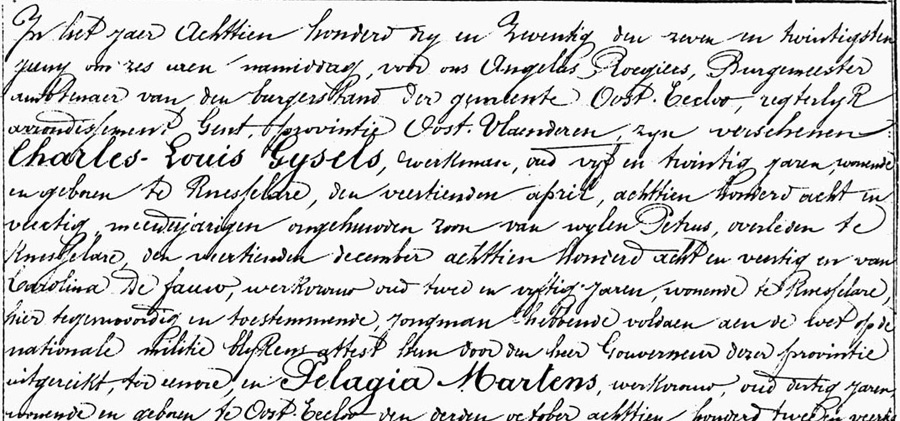 In het jaer Achttien honderd dry en Zeventig den zeven en twintigsten
juny om zes uren namiddag, voor ons Angelus Roegiers, Burgemeester
ambtenaer van den burgerstand der gemeente Oost-Eecloo, regterlyk
arrondissement Gent, provintie Oost-Vlaenderen, zyn verschenen:
Charles-Louis Gysels, werkman, oud vyf en twintig jaren, wonende
en geboren te Knesselare, den veertienden april, achttien honderd acht en
veertig, meerderjarigen ongehuwden zoon van wylen Petrus, overleden te
Knesselare, den veertienden december achttien honderd acht en veertig en van
Carolina De fauw, werkvrouw oud twee en vyftig jaren, wonende te Knesselare,
hier tegenwoordig en toestemmende, jongman hebbende voldaen aen de wet op de
nationale militie blykens attest hun door den heer Gouverneur dezer provintie
uitgereikt, ter eenre, en Pelagia Martens, werkvrouw, oud dertig jaren,
wonende en geboren te Oost-Eecloo den derden october achttien honderd twee en veertig